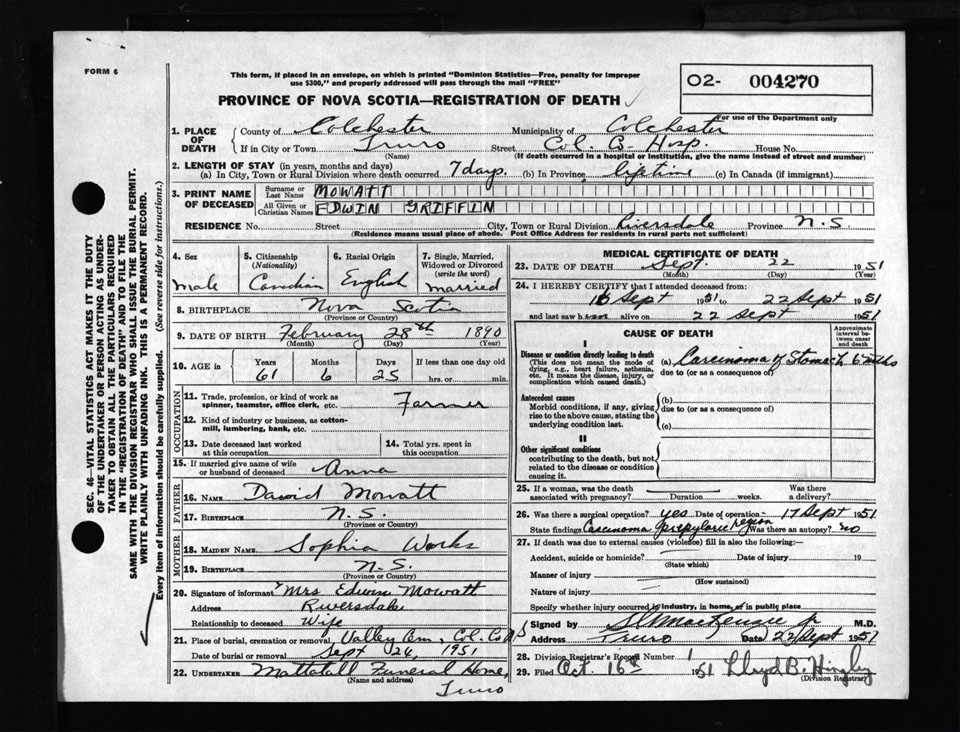 FORM 6
This form, if placed in an envelope, on which is printed "Dominion Statistics—Free, penalty for improper
use $300," and properly addressed will pass through the mail "FREE"
O2- 004270
PROVINCE OF NOVA SCOTIA—REGISTRATION OF DEATH
For use of the Department only
1. PLACE OF DEATH { County of Colchester Municipality of Colchester
If in City or Town Truro Street Col. Co. Hosp. House No.
(Name) (If death occurred in a hospital or institution, give the name instead of street and number)
2. LENGTH OF STAY (in years, months and days)
(a) In City, Town or Rural Division where death occurred 7 days. (b) In Province lifetime (c) In Canada (if immigrant)
3. PRINT NAME OF DECEASED { Surname or Last Name MOWATT
All Given or Christian Names EDWIN GRIFFIN
RESIDENCE No. Street City, Town or Rural Division Riversdale Province N.S.
(Residence means usual place of abode. Post Office Address for residents in rural parts not sufficient)
4. Sex Male
5. Citizenship (Nationality) Canadian
6. Racial Origin English
7. Single, Married, Widowed or Divorced (write the word) Married
8. BIRTHPLACE Nova Scotia
(Province or Country)
9. DATE OF BIRTH February 28th 1890
(Month) (Day) (Year)
10. AGE in Years 61 Months 6 Days 25 If less than one day old hrs. or min.
OCCUPATION
11. Trade, profession, or kind of work as spinner, teamster, office clerk, etc. Farmer
12. Kind of industry or business, as cotton-mill, lumbering, bank, etc.
13. Date deceased last worked at this occupation
14. Total yrs. spent in this occupation
15. If married give name of wife or husband of deceased Anna
FATHER
16. NAME David Mowatt
17. BIRTHPLACE N.S.
(Province or Country)
MOTHER
18. MAIDEN NAME Sophia Works
19. BIRTHPLACE N.S.
(Province or Country)
20. Signature of informant Mrs Edwin Mowatt
Address Riversdale
Relationship to deceased Wife
21. Place of burial, cremation or removal Valley Cem, Col. Co N S
Date of burial or removal Sept 24, 1951
22. UNDERTAKER Mattatall Funeral Home,
(Name and address)
Truro
MEDICAL CERTIFICATE OF DEATH
23. DATE OF DEATH Sept. 22 1951
(Month) (Day) (Year)
24. I HEREBY CERTIFY that I attended deceased from:
16 Sept 1951 to 22 Sept 1951
and last saw him alive on 22 Sept 1951
CAUSE OF DEATH
Approximate interval between onset and death
I
Disease or condition directly leading to death (a) Carcinoma of Stomach 6 mths
(This does not mean the mode of dying, e.g., heart failure, asthenia, etc. It means the disease, injury, or complication which caused death.)
due to (or as a consequence of)
Antecedent causes
Morbid conditions, if any, giving rise to the above cause, stating the underlying condition last.
(b)
due to (or as a consequence of)
(c)
II
Other significant conditions
contributing to the death, but not related to the disease or condition causing it.
25. If a woman, was the death associated with pregnancy? Duration weeks. Was there a delivery?
26. Was there a surgical operation? yes Date of operation 17 Sept 1951
State findings Carcinoma prepyloric region Was there an autopsy? no
27. If death was due to external causes (violence) fill in also the following:—
Accident, suicide or homicide? Date of injury 19
(State which)
Manner of injury
(How sustained)
Nature of injury
Specify whether injury occurred in industry, in home, or in public place
Signed by S L MacKenzie Jr M.D.
Address Truro Date 22 Sept 1951
28. Division Registrar's Record Number 1
29. Filed Oct. 16th 1951 Lloyd B. Hingley
(Division Registrar)
SEC. 46—VITAL STATISTICS ACT MAKES IT THE DUTY
OF THE UNDERTAKER OR PERSON ACTING AS UNDER-
TAKER TO OBTAIN ALL THE PARTICULARS REQUIRED
IN THE "REGISTRATION OF DEATH" AND TO FILE THE
SAME WITH THE DIVISION REGISTRAR WHO SHALL ISSUE THE BURIAL PERMIT.
WRITE PLAINLY WITH UNFADING INK. THIS IS A PERMANENT RECORD.
Every item of information should be carefully supplied. (See reverse side for instructions.)